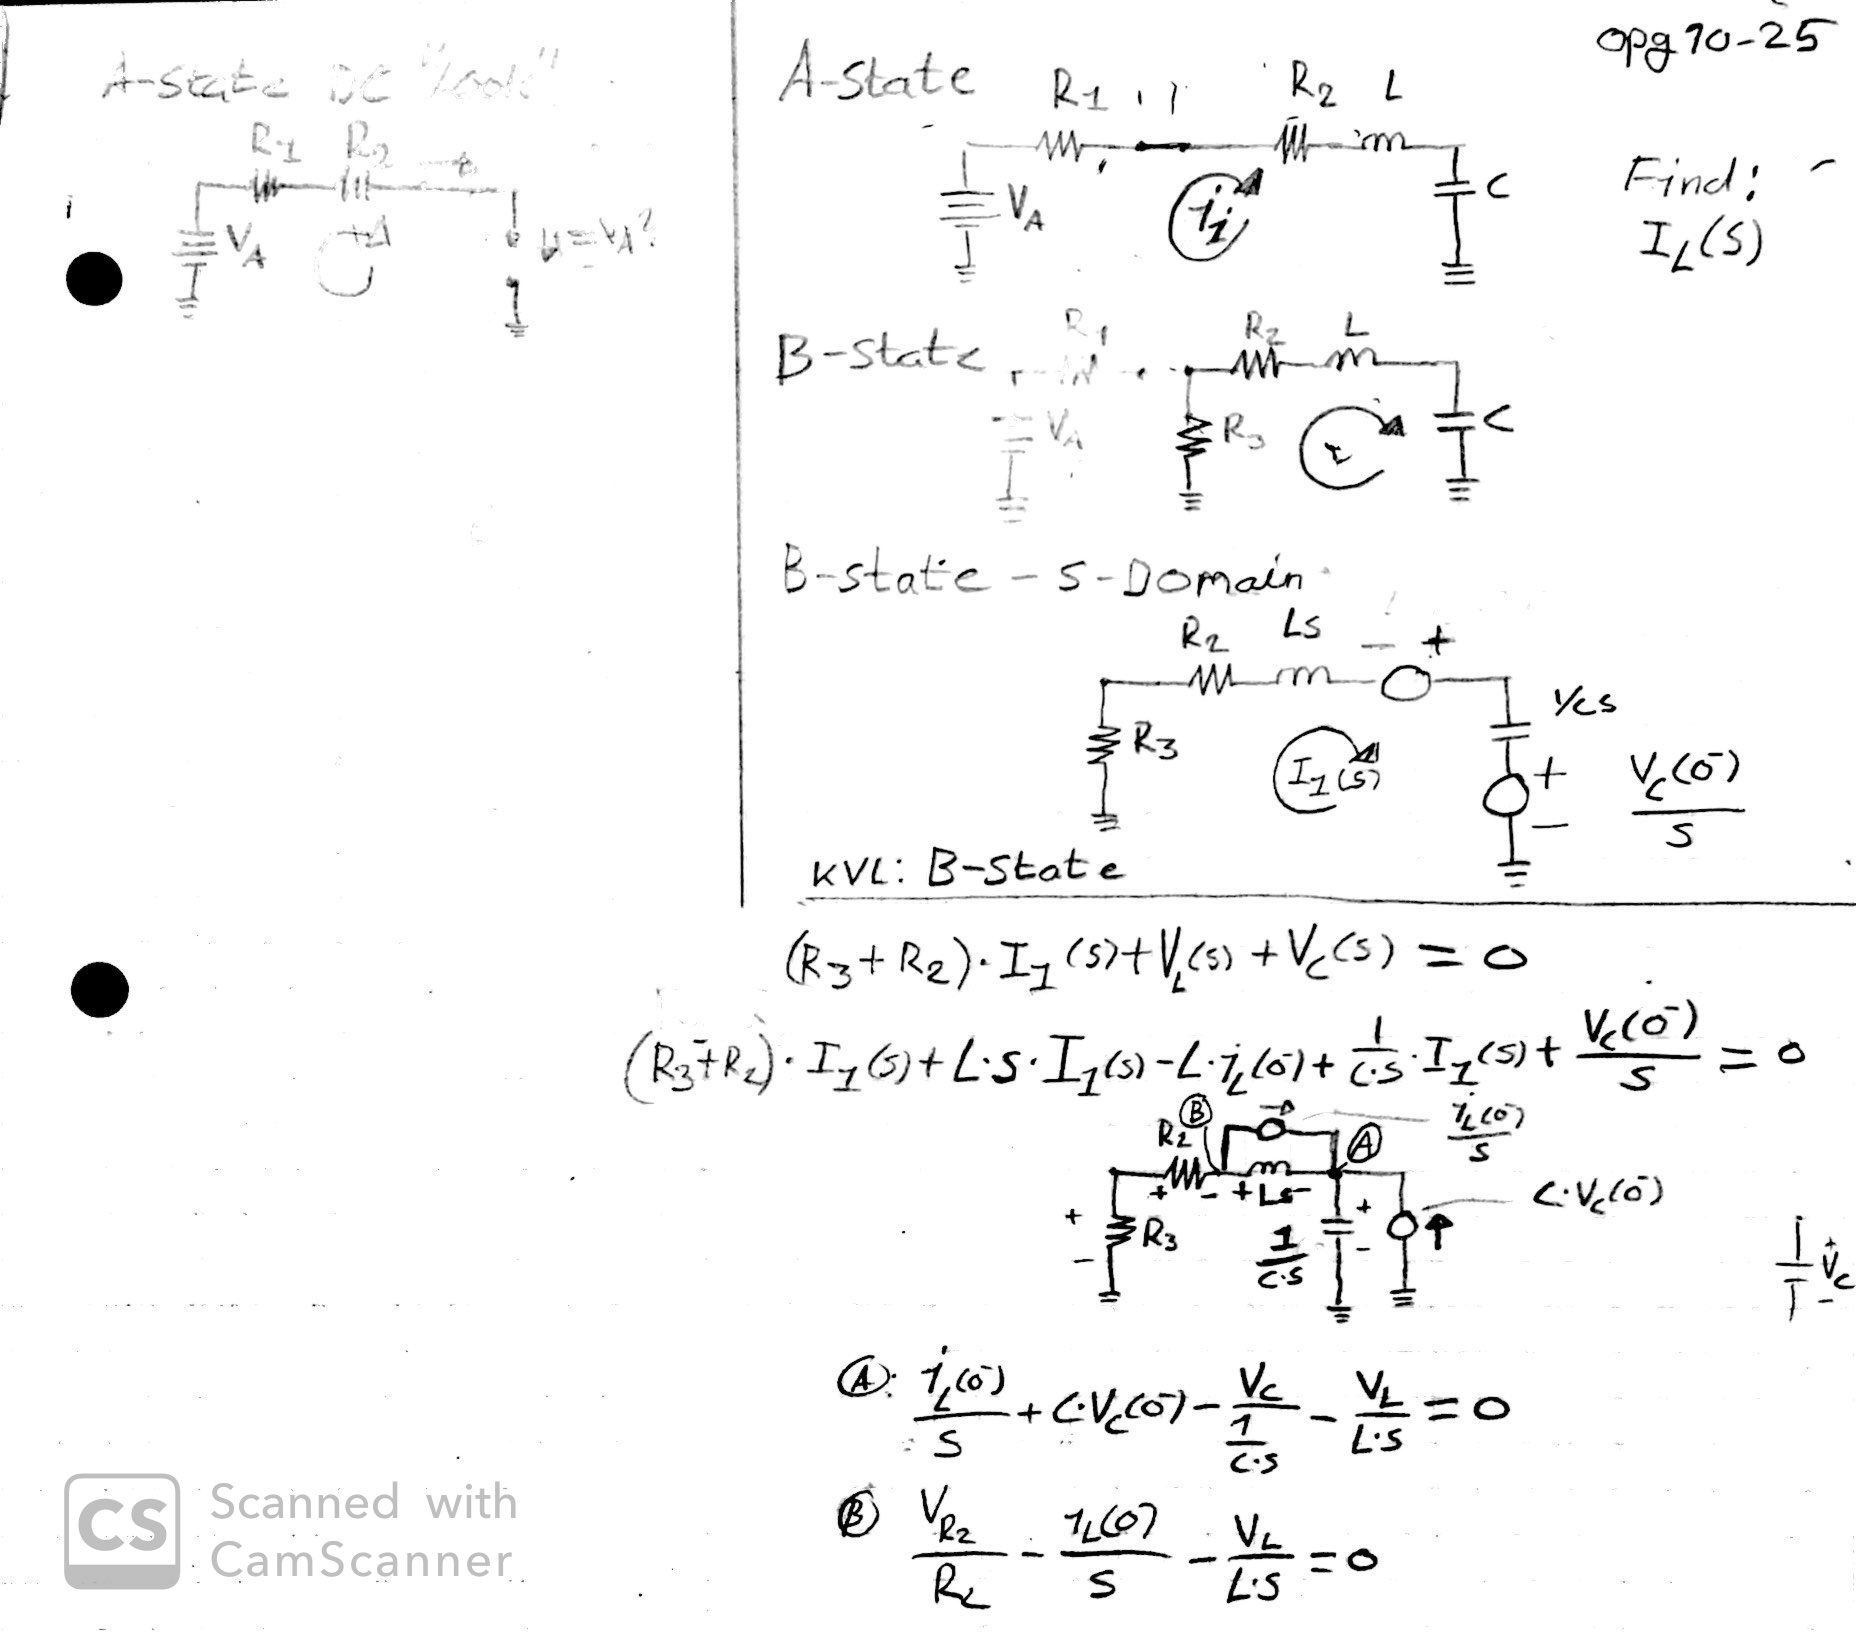 opg 10-25
A-State DC "Look"
R1 R2
VA
A-State
R1 R2 L
VA
C
Find:
IL(S)
B-State
R1 R2 L
VA
R3
C
B-state - S-Domain
R2 LS - +
1/CS
R3
I1(S)
+
-
Vc(0-)
S
KVL: B-State
(R3+R2)·I1(s)+VL(s)+Vc(s) = 0
(R3+R2)·I1(s)+L·S·I1(s)-L·iL(0-)+1/C·S·I1(s)+Vc(0-)/S = 0
R2 B A iL(0-)/S
+ - + LS -
+ R3 -
1/C·S + -
C·Vc(0-)
+ Vc -
A: iL(0-)/S + C·Vc(0-) - Vc/(1/C·S) - VL/L·S = 0
B VR2/R2 - iL(0-)/S - VL/L·S = 0
CS Scanned with
CamScanner